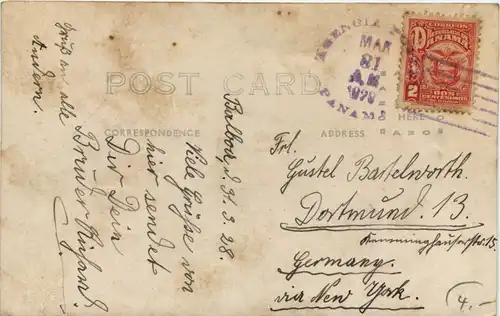 POST CARD
CORRESPONDENCE
ADDRESS
HERE
Balboa, d. 31.3.28.
Viele Grüße von
hier sendet
Dir Dein
Bruder Richard.
Gruß an alle
Andern.
AGENCIA
MAR
31
A.M.
PANAMA
CORREOS
REPUBLICA DE
PANAMA
2
DOS
CENTESIMOS
Frl.
Gustel Bastelworth.
Dortmund. 13.
Kemminghauserstr. 15.
Germany.
via New York.
4.-